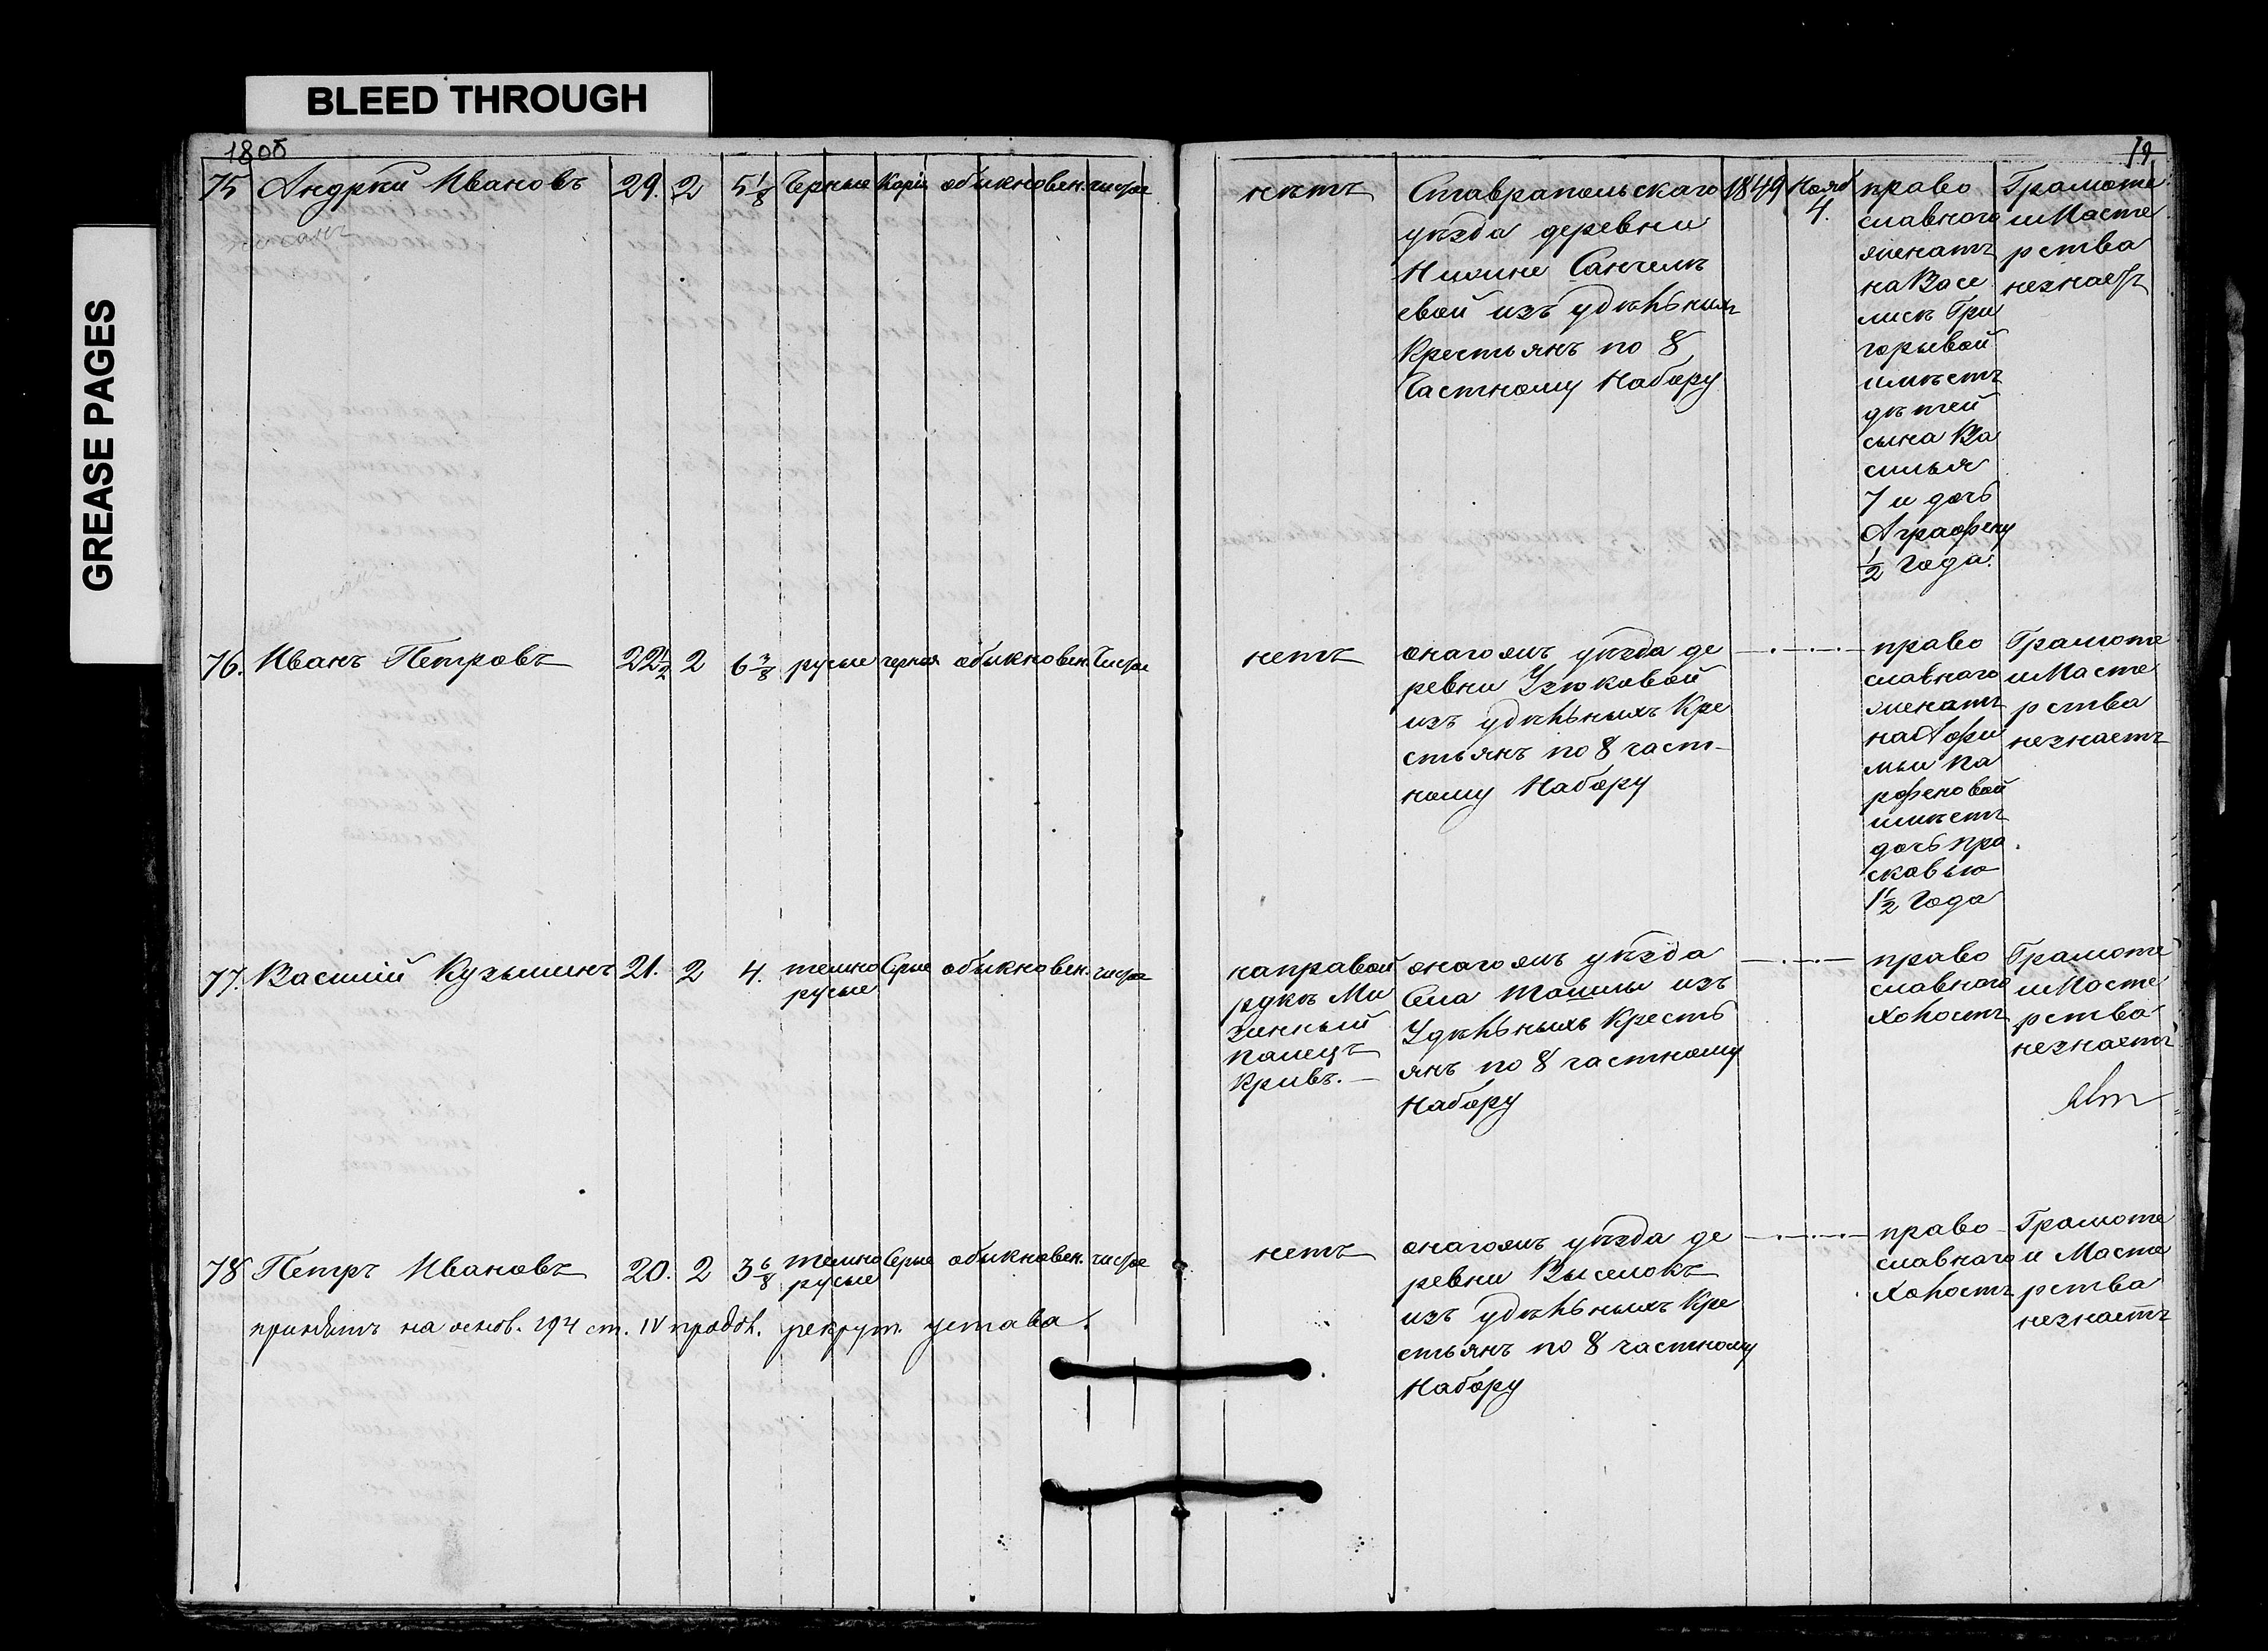 BLEED THROUGH
GREASE PAGES
1808
19
75 Андрѣй Ивановъ 29. 2 5 1/8 Черные Каріе обыкновен. чистое
нѣтъ
Ставрапольскаго 1849 Нояб
4.
уѣзда деревни
Нижне Санчелѣ
евой изъ удѣльныхъ
Крестьянъ по 8
Частному Набору
право
славнаго
женатъ
на Васе
лисѣ Гри
горьевой
имѣетъ
дѣтей
сына Ва
силья
7 и дочь
Аграфену
1/2 Года.
Грамоте
и Масте
рства
незнаетъ
76. Иванъ Петровъ 22 1/2 2 6 3/8 русые черныя обыкновен. Чистое
нетъ
онагожъ уѣзда де
ревни Узюковой
изъ удѣльныхъ Кре
стьянъ по 8 част-
ному Набору
право
славнаго
женатъ
на Афи
мьи Па
рфеновой
имѣетъ
дочь Пра
сковью
1 1/2 Года
Грамоте
и Масте
рства
незнаетъ
77. Василій Кузьминъ 21. 2 4. темно Серые обыкновен. чистое
русые
на правой
рукѣ Ми
зинный
палецъ
Кривъ.
онагожъ уѣзда
Села Ташлы изъ
Удѣльныхъ Кресть
янъ по 8 частному
Набору
право
славнаго
Холостъ
Грамоте
и Масте
рства
незнаетъ
78 Петръ Ивановъ 20. 2 3 6/8 темно Серые обыкновен. чистое
русые
принятъ на основ. 194 ст. IV продол. рекрут. устава.
нетъ
онагожъ уѣзда де
ревни Выселокъ
изъ удѣльныхъ Кре
стьянъ по 8 частному
Набору
право
славнаго
Холостъ
Грамоте
и Масте
рства
незнаетъ